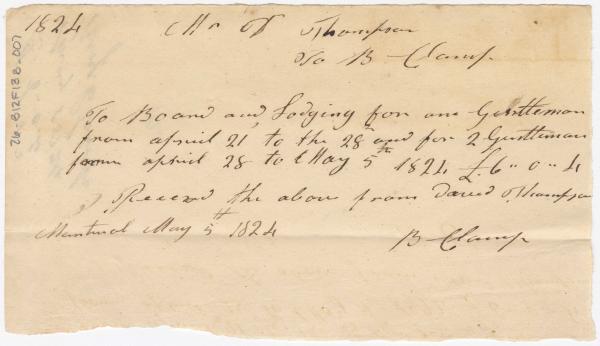 1824 Mr D Thompson
To B Clamp
To Board and Lodging for one Gentleman
from april 21 to the 28th and for 2 Gentleman
from april 28 to May 5th 1824 £6"0"4
Receved the above from David Thompson
Montreal May 5th 1824
B Clamp
76-812F188-007